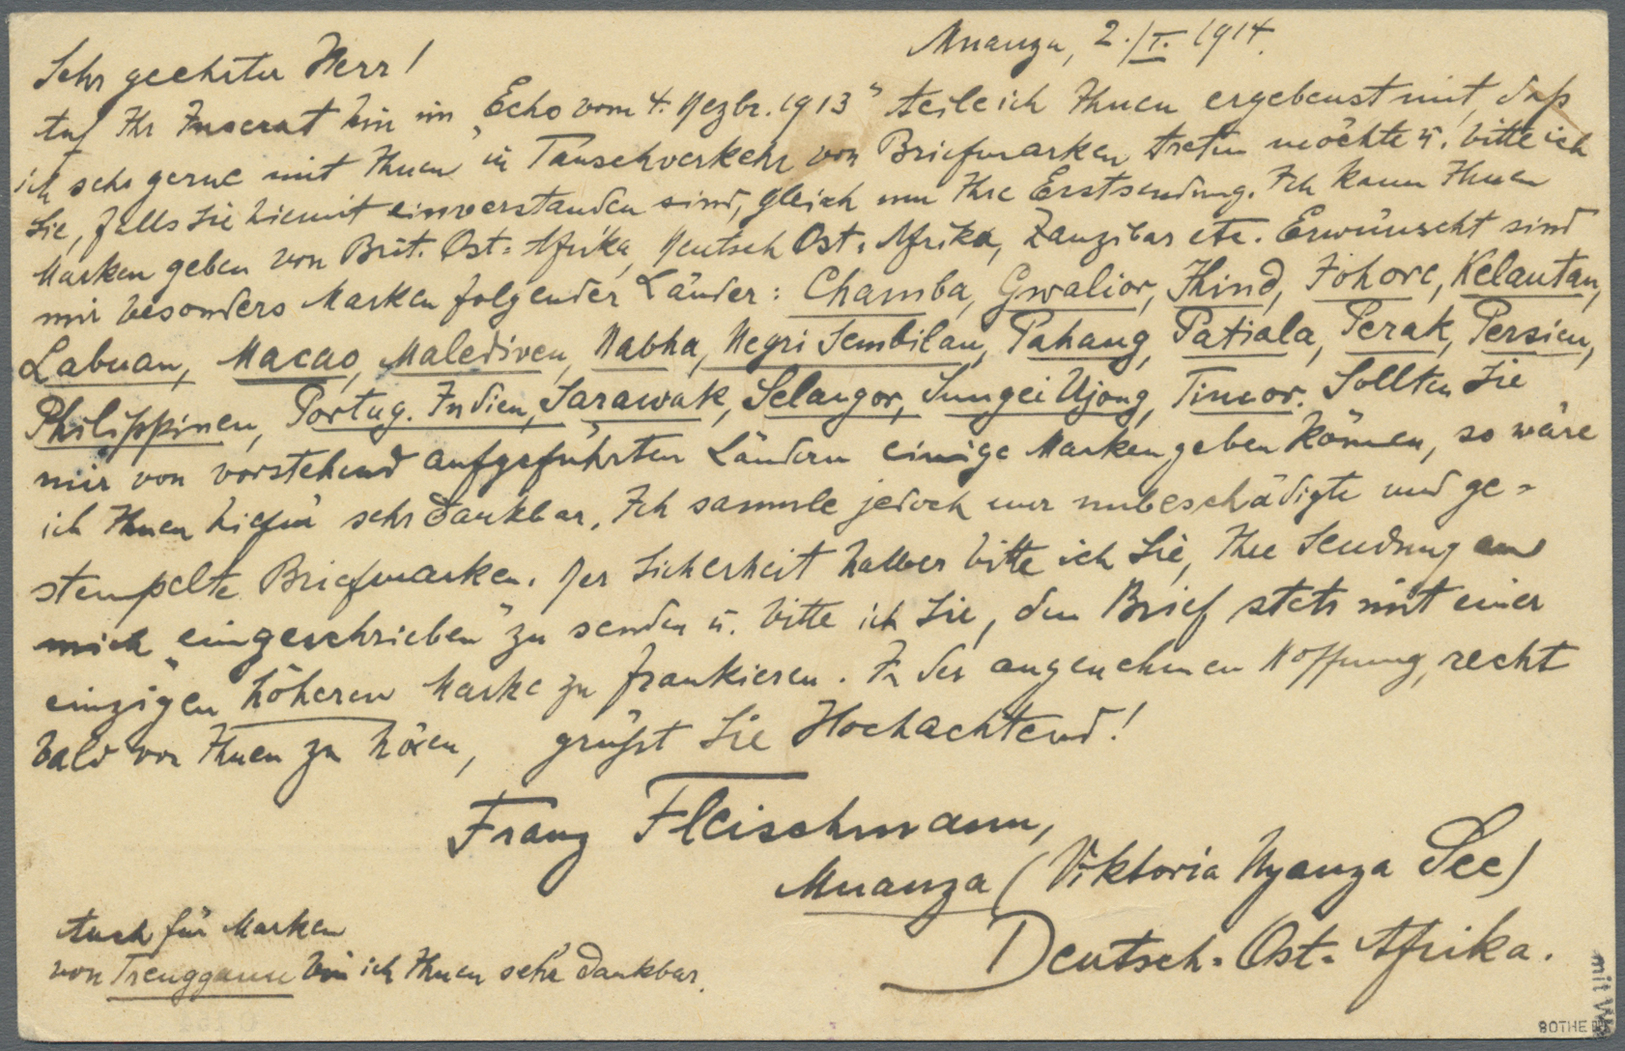 Muanza, 2./I. 1914.
Sehr geehrter Herr!
Auf Ihr Inserat hin im „Echo vom 4. Dezbr. 1913" teile ich Ihnen ergebenst mit, daß
ich sehr gerne mit Ihnen in Tauschverkehr von Briefmarken treten möchte u. bitte ich
Sie, falls Sie hiemit einverstanden sind, gleich um Ihre Erstsendung. Ich kann Ihnen
Marken geben von Brit. Ost-Afrika, Deutsch Ost-Afrika, Zanzibar etc. Erwünscht sind
mir besonders Marken folgender Länder: Chamba, Gwalior, Jhind, Johore, Kelantan,
Labuan, Macao, Malediven, Nabha, Negri Sembilan, Pahang, Patiala, Perak, Persien,
Philippinen, Portug. Indien, Sarawak, Selangor, Sungei Ujong, Timor. Sollten Sie
mir von vorstehend aufgeführten Ländern einige Marken geben können, so wäre
ich Ihnen hiefür sehr dankbar. Ich sammle jedoch nur unbeschädigte und ge-
stempelte Briefmarken. Der Sicherheit halber bitte ich Sie, Ihre Sendung an
mich „eingeschrieben" zu senden u. bitte ich Sie, den Brief stets mit einer
einzigen höheren Marke zu frankieren. In der angenehmen Hoffnung, recht
bald von Ihnen zu hören, grüßt Sie Hochachtend!
Franz Fleischmann,
Muanza (Viktoria Nyanza See)
Deutsch-Ost-Afrika.
Auch für Marken
von Trengganu bin ich Ihnen sehr dankbar.
mit
BOTHE